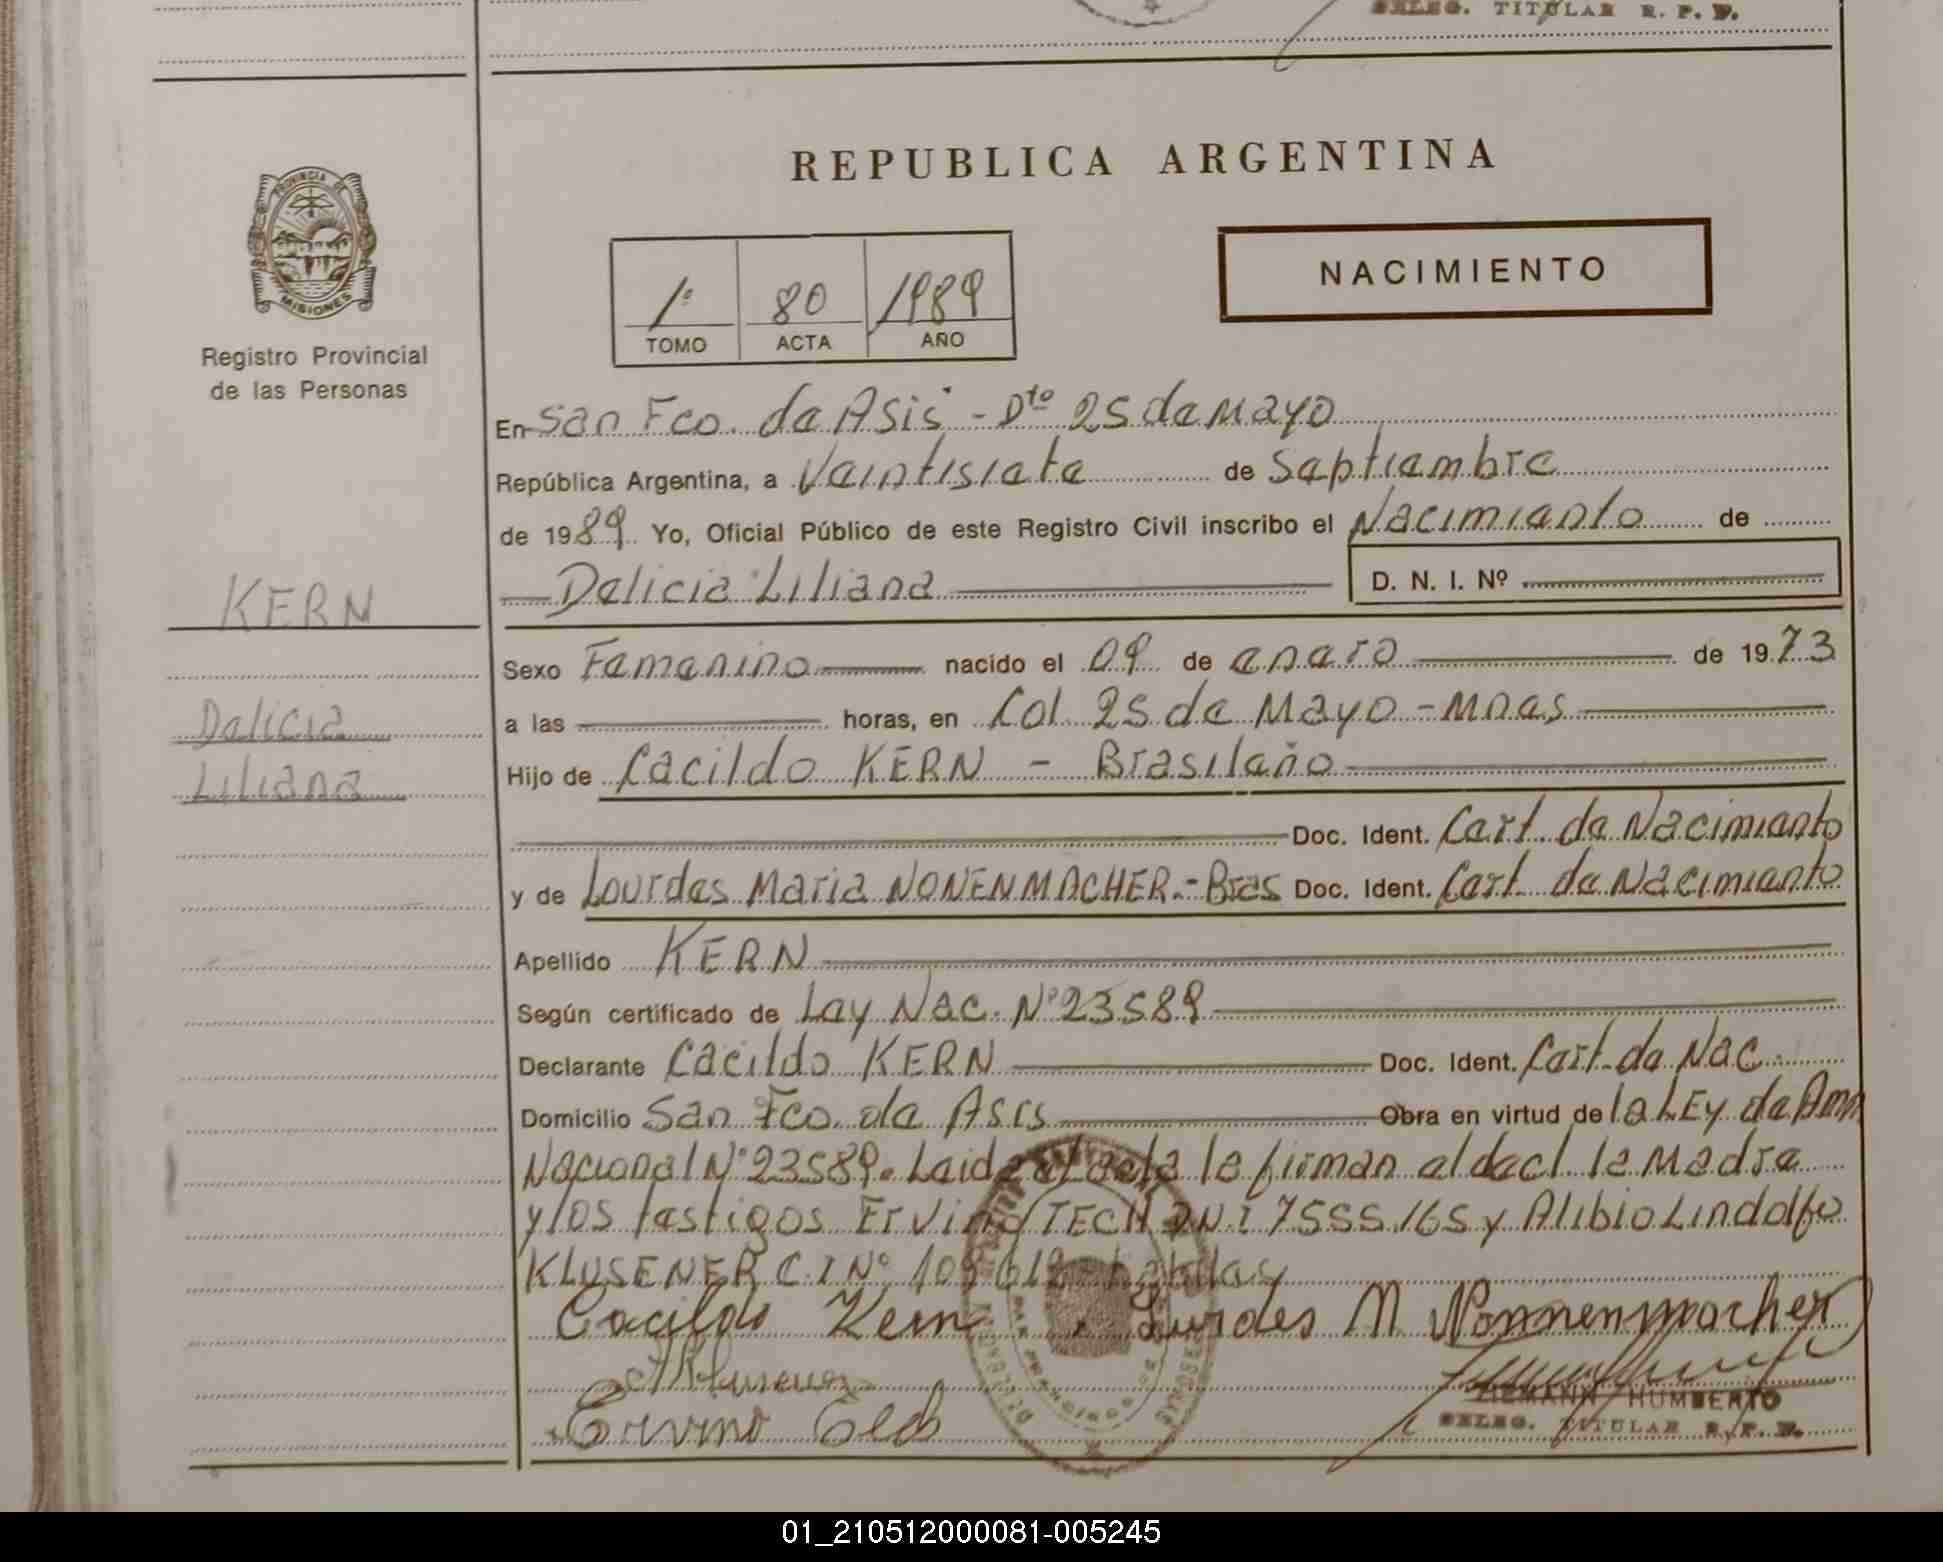 DELEG. TITULAR R. P. P.
REPUBLICA ARGENTINA
PROVINCIA DE
MISIONES
Registro Provincial
de las Personas
1º 80 1989
TOMO ACTA AÑO
NACIMIENTO
En San Fco. de Asis - Dto 25 de Mayo
República Argentina, a Veintisiete de Septiembre
de 1989 Yo, Oficial Público de este Registro Civil inscribo el Nacimiento de
Delicia Liliana D. N. I. Nº
KERN
Delicia
Liliana
Sexo Femenino nacido el 09 de enero de 1973
a las horas, en Col 25 de Mayo - Mnes
Hijo de Cacildo KERN - Brasileño
Doc. Ident. Cert. de Nacimiento
y de Lourdes Maria NONENMACHER.- Bras Doc. Ident. Cert. de Nacimiento
Apellido KERN
Según certificado de Ley Nac. Nº 23589
Declarante Cacildo KERN Doc. Ident. Cert. de Nac.
Domicilio San Fco. de Asis Obra en virtud de la LEy de Amn
Nacional Nº 23589. Leida el acta la firman el decl. la Madre
y los testigos Ervino TECH DNI 7555165 y Alibio Lindolfo
KLUSENER C.I Nº
Cacildo Kern Lurdes M Nonnenmacher
Ervino
ZIEMANN HUMBERTO
DELEG. TITULAR R. P. P.
01_210512000081-005245